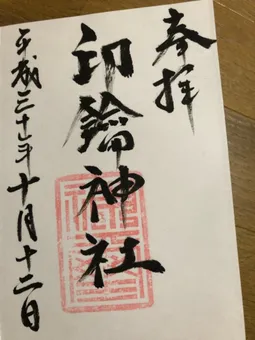 奉拝
印鑰神社
平成三十年十月十二日